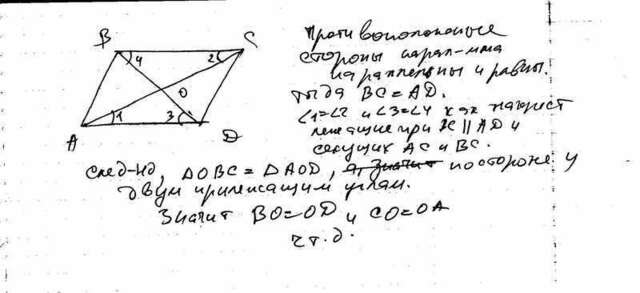 B
C
4
2
O
1
3
A
D
Противоположные
стороны парал-мма
параллельны и равны.
тогда BC=AD.
∠1=∠2 и ∠3=∠4 как накрест
лежащие при BC || AD и
секущих AC и BC.
след-но, ΔOBC = ΔAOD, а, значит по стороне и
двум прилежащим углам.
Значит BO=OD и CO=OA
чт.д.